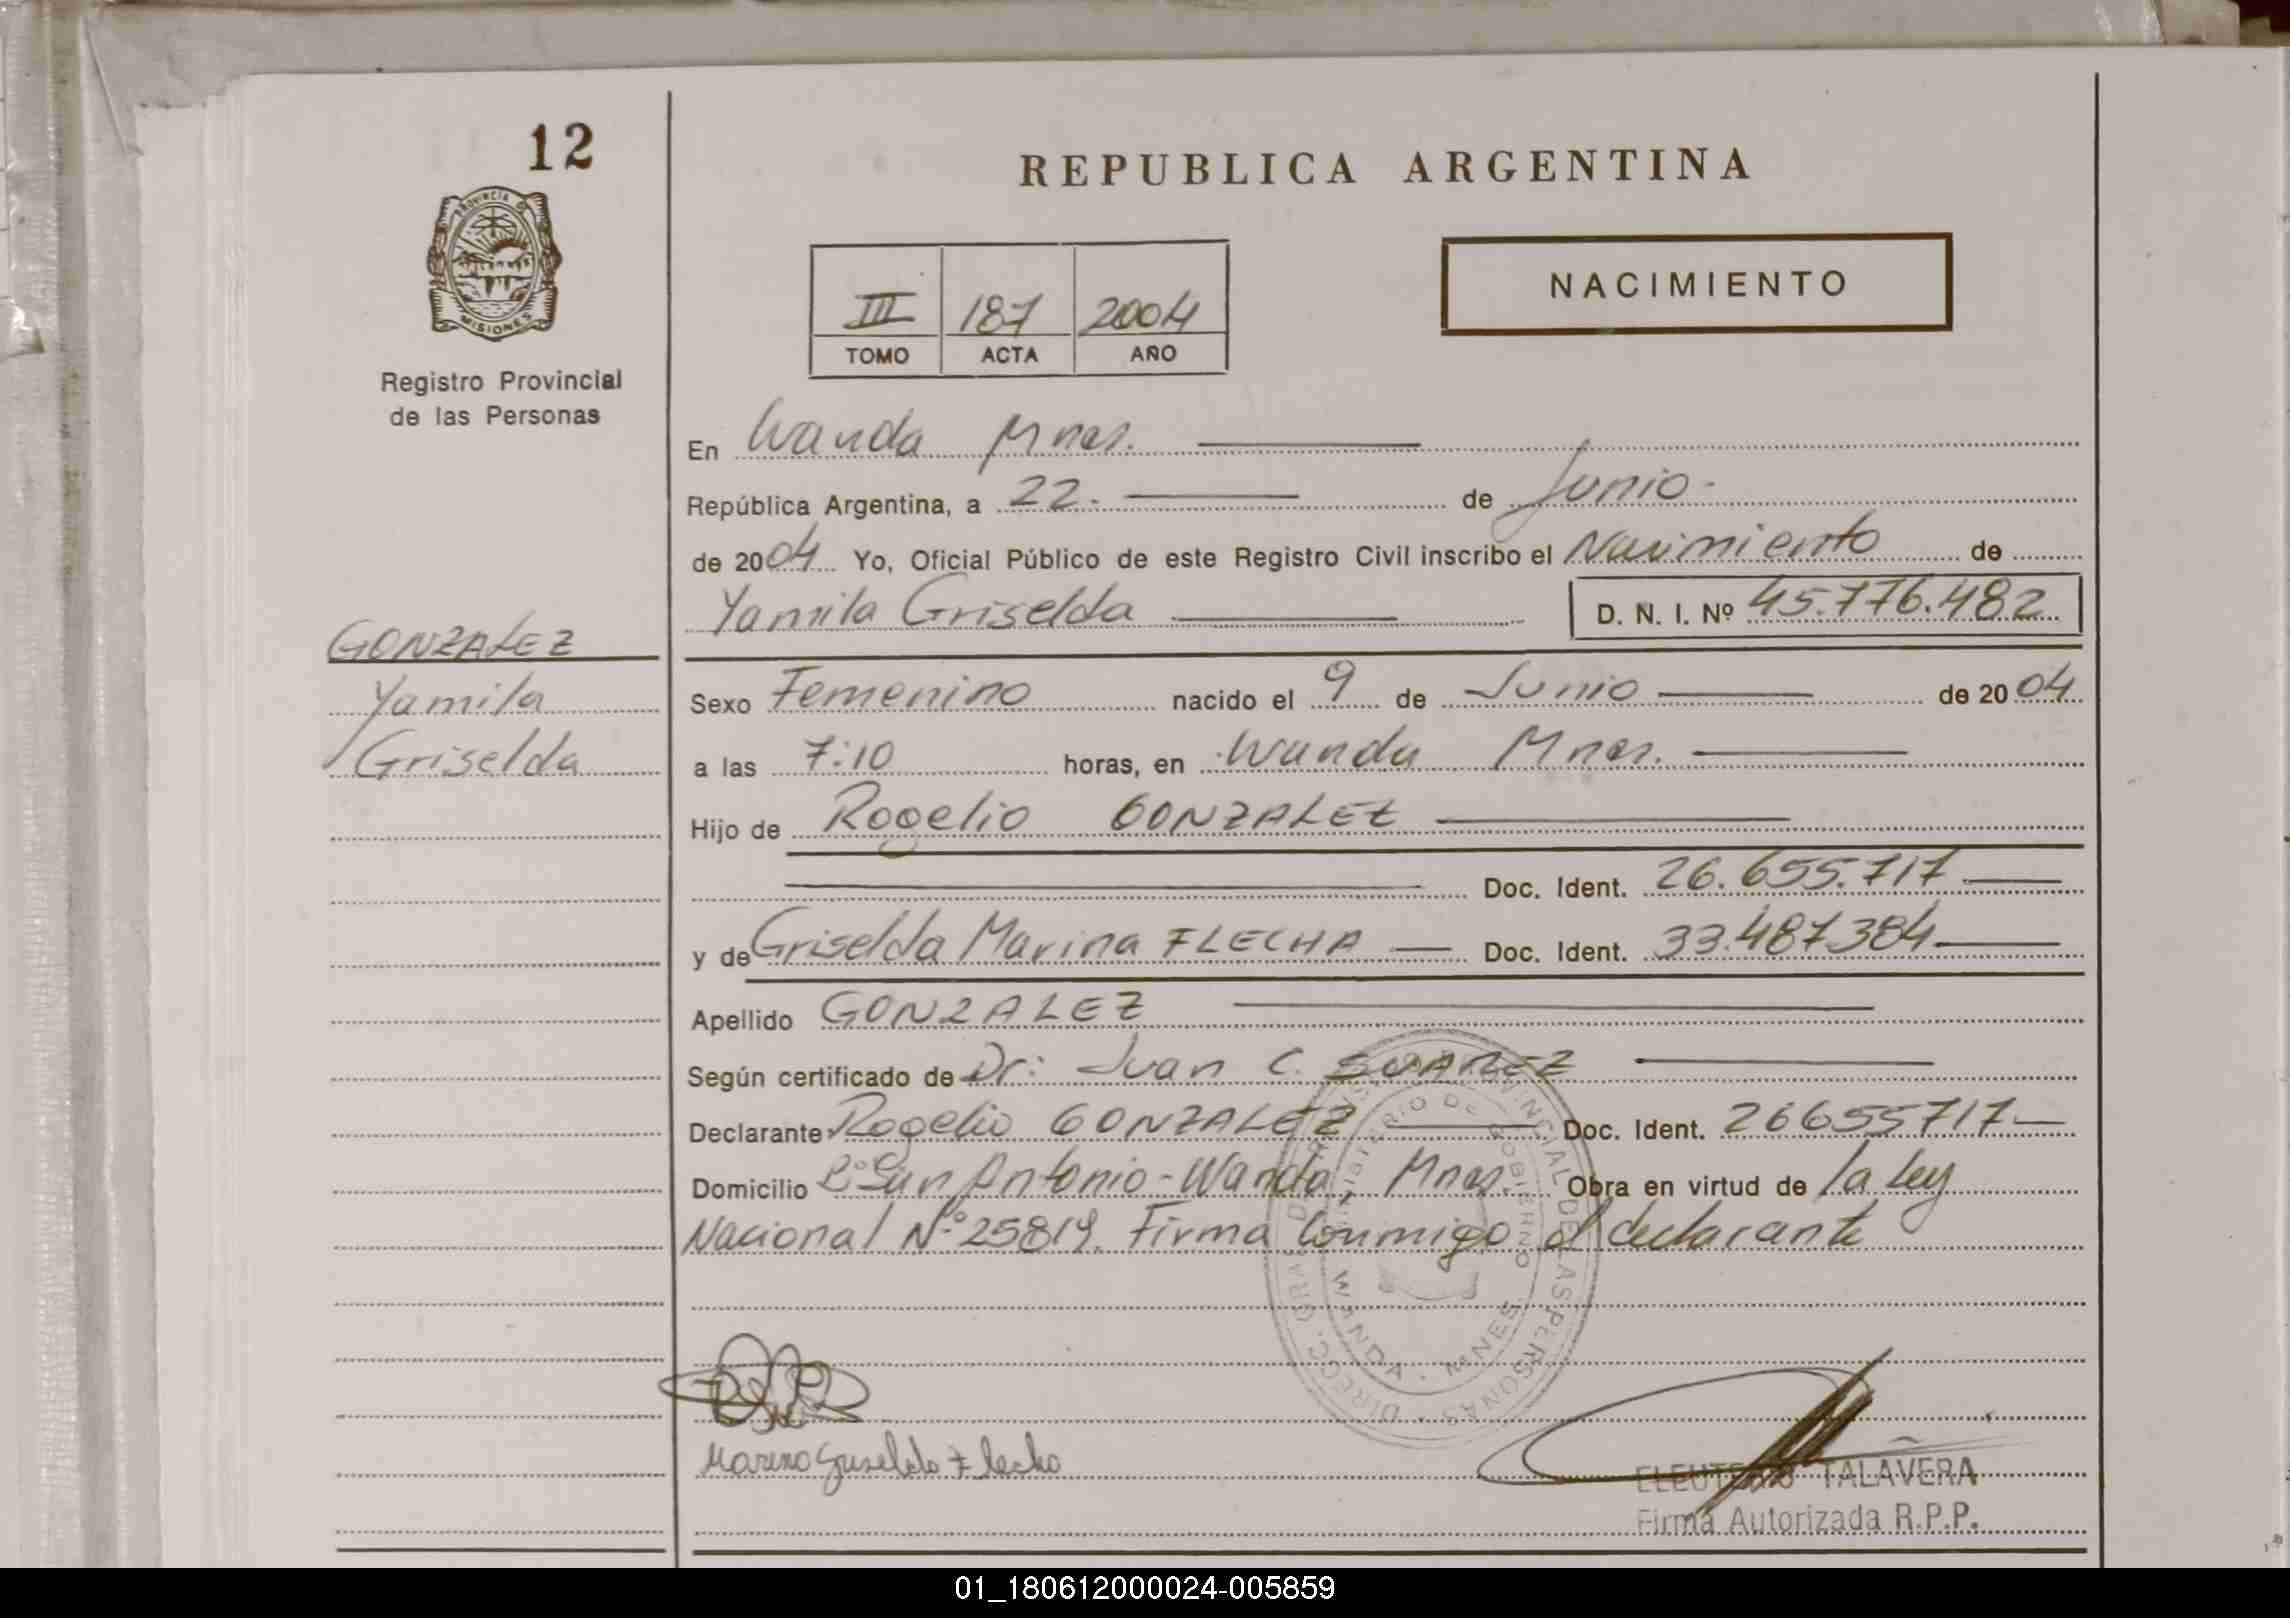 12
PROVINCIA DE
MISIONES
Registro Provincial
de las Personas
GONZALEZ
Yamila
Griselda
REPUBLICA ARGENTINA
NACIMIENTO
III 187 2004
TOMO ACTA AÑO
En Wanda Mnes.
República Argentina, a 22. de Junio.
de 2004 Yo, Oficial Público de este Registro Civil inscribo el Nacimiento de
Yamila Griselda D. N. I. Nº 45.776.482
Sexo Femenino nacido el 9 de Junio de 2004
a las 7:10 horas, en Wanda Mnes.
Hijo de Rogelio GONZALEZ
Doc. Ident. 26.655.717
y de Griselda Marina FLECHA Doc. Ident. 33.487.384
Apellido GONZALEZ
Según certificado de Dr: Juan C. SUAREZ
Declarante Rogelio GONZALEZ Doc. Ident. 26655717
Domicilio Bº San Antonio - Wanda, Mnes. Obra en virtud de la ley
Nacional Nº 25819. Firma Conmigo el declarante
MINISTERIO DE GOBIERNO
WANDA - MNES.
Marina Griselda Flecha
ELEUTERIO TALAVERA
Firma Autorizada R.P.P.
01_180612000024-005859